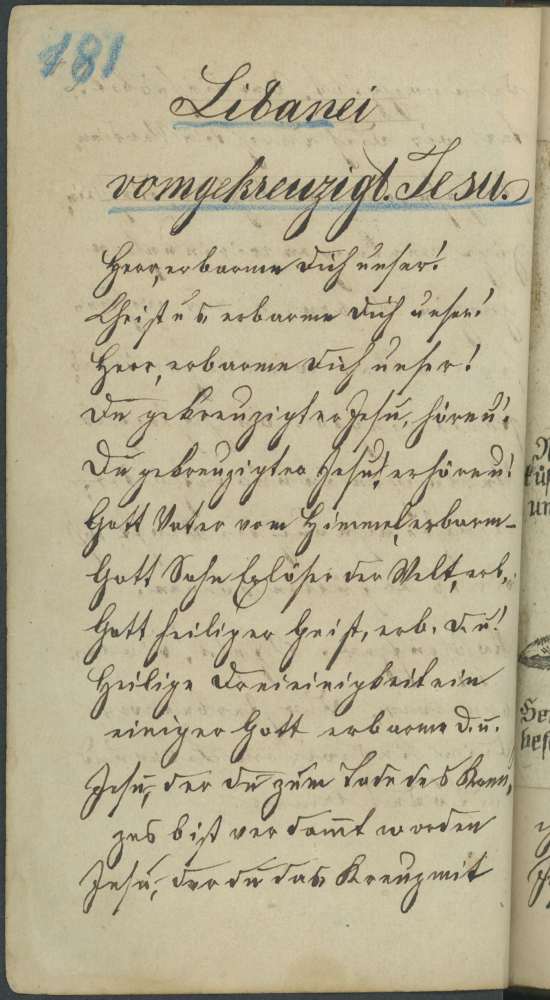 181
Litanei
vom gekreuzigt. Jesu.
Herr, erbarme dich unser!
Christus, erbarme dich unser!
Herr, erbarme dich unser!
Du gekreuzigter Jesu, höre u.!
Du gekreuzigter Jesu, erhöre u.!
Gott Vater vom Himmel, erbarm-
Gott Sohn Erlöser der Welt, erb.
Gott heiliger Geist, erb. d. u.!
Heilige Dreieinigkeit ein
einiger Gott erbarme d. u.
Jesu, der du zum Tode des Kreu-
zes bist verdam̄t worden
Jesu, der du das Kreuz mit